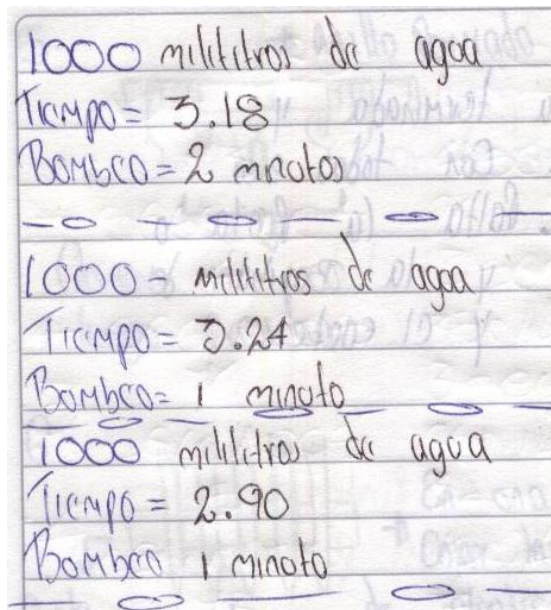 1000 mililitros de agua
Tiempo = 3.18
Bombeo = 2 minutos
1000 - mililitros de agua
Tiempo = 3.24
Bombeo = 1 minuto
1000 mililitros de agua
Tiempo = 2.90
Bombeo 1 minuto